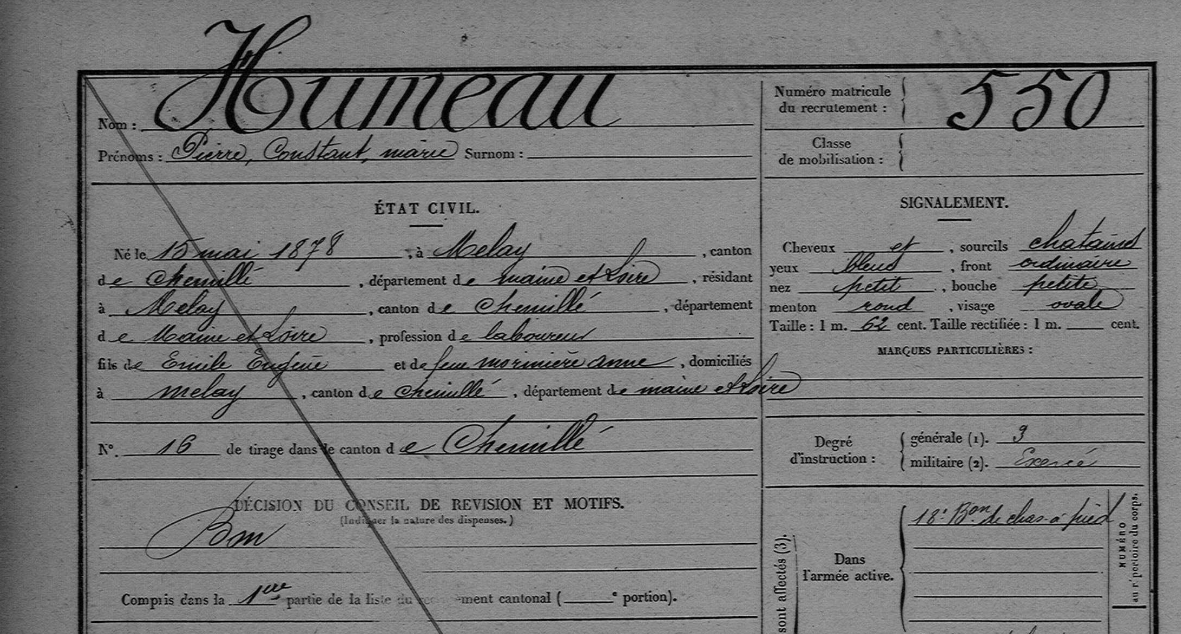 Humeau
Nom :
Prénoms : Pierre, Constant, marie Surnom :
Numéro matricule
du recrutement : 550
Classe
de mobilisation :
ÉTAT CIVIL.
Né le 15 mai 1878, à Melay, canton
de Chemillé, département de maine et Loire, résidant
à Melay, canton de Chemillé, département
de Maine et Loire, profession de laboureur
fils de Emile Eugène et de feue morinière anne, domiciliés
à melay, canton de chemillé, département de maine et Loire
N° 16 de tirage dans le canton de Chemillé
DÉCISION DU CONSEIL DE REVISION ET MOTIFS.
(Indiquer la nature des dispenses.)
Bon
Compris dans la 1ère partie de la liste du ment cantonal ( e portion).
SIGNALEMENT.
Cheveux et, sourcils chatains
yeux bleus, front ordinaire
nez petit, bouche petite
menton rond, visage ovale
Taille : 1 m. 62 cent. Taille rectifiée : 1 m. cent.
MARQUES PARTICULIÈRES :
Degré
d'instruction :
générale (1). 3
militaire (2). Exercé
sont affectés (3).
Dans
l'armée active.
18e Bon de chas. à pied
NUMÉRO
au répertoire du corps.